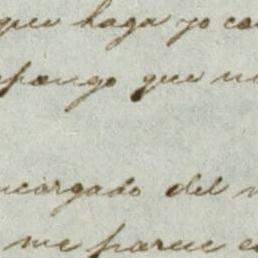 que haga yo ca
pongo que n
ncargado del
me parece e